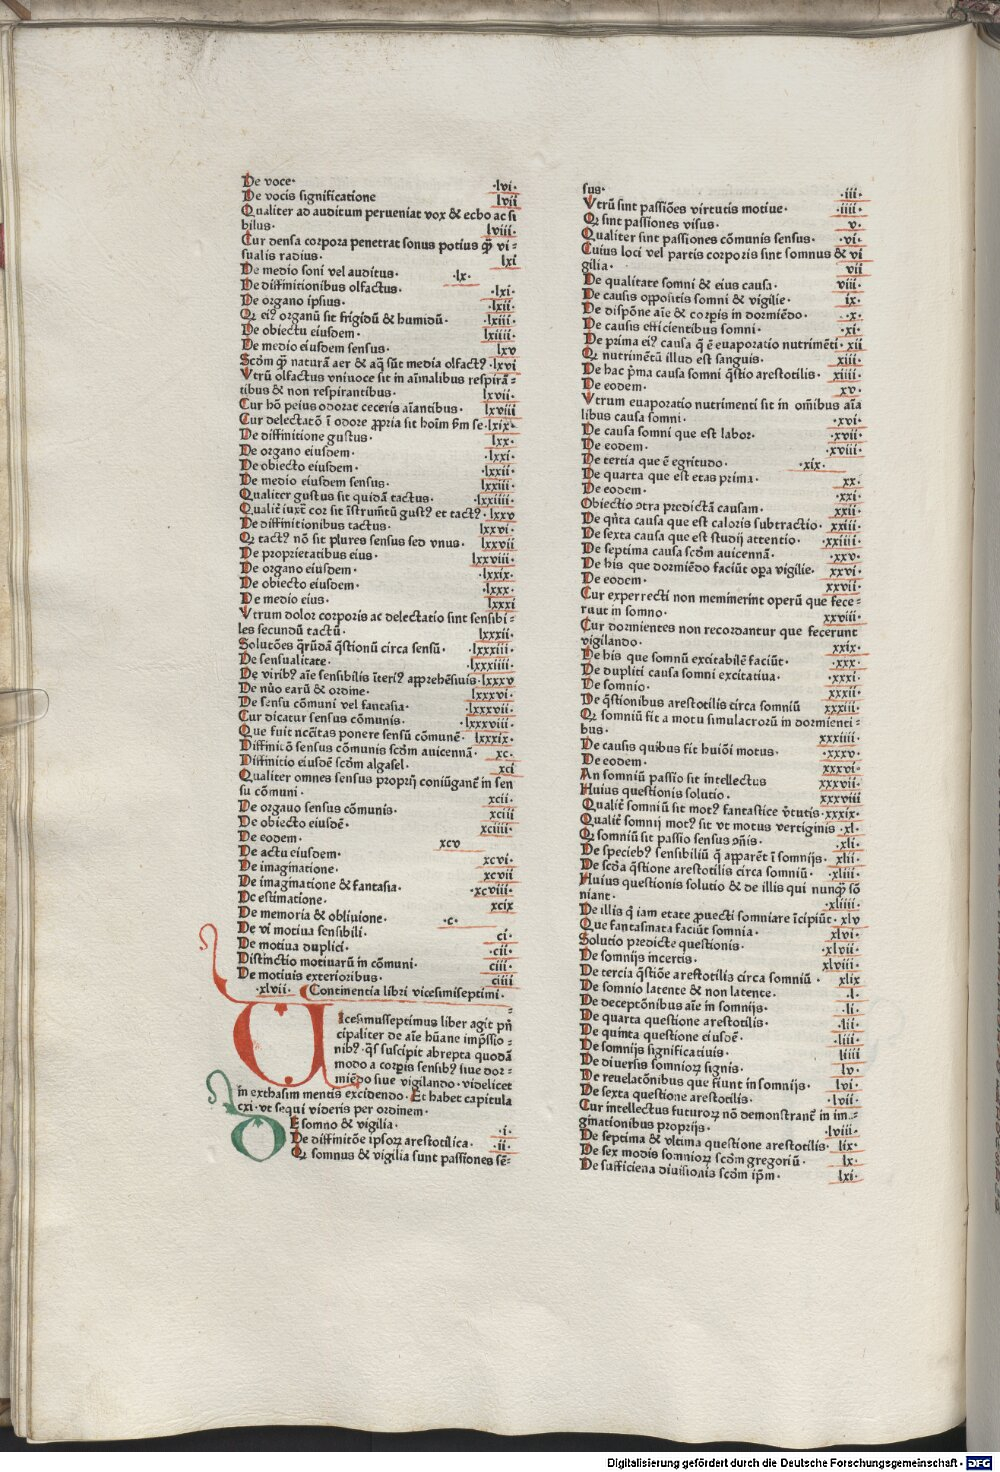 De voce· ·lvi·
De vocis significatione lvii
Qualiter ad auditum perueniat vox & echo ac si
bilus· lviii·
Cur densa corpora penetrat sonus potius q̃ vi⸗
sualis radius· lxi
De medio soni vel auditus· ·lx·
De diffinitionibus olfactus· ·lxi·
De organo ipsius· ·lxii·
Q ei? organũ sit frigidũ & humidũ· ·lxiii·
De obiectu eiusdem· lxiiii·
De medio eiusdem sensus· lxv
Scõm q̃ naturã aer & aq̃ sũt media olfact? ·lxvi
Vtrũ olfactus vniuoce sit in aĩnalibus respirã⸗
tibus & non respirantibus· lxvii·
Cur hõ peius odorat ceteris aĩantibus· lxviii
Cur delectatõ ĩ odore ꝓpria sit hoĩm ẜm se·lxix·
De diffinitione gustus· lxx·
De organo eiusdem· ·lxxi·
De obiecto eiusdem· ·lxxii·
De medio eiusdem sensus· lxxiii·
Qualiter gustus sit quidã tactus· ·lxxiiii·
Qualit̃ iuxt̃ cor sit ĩstrum̃tũ gust? et tact? ·lxxv
De diffinitionibus tactus· lxxvi·
Q tact? nõ sit plures sensus sed vnus· lxxvii
De proprietatibus eius· lxxviii·
De organo eiusdem· ·lxxix·
De obiecto eiusdem· ·lxxx·
De medio eius· lxxxi
Vtrum dolor corporis ac delectatio sint sensibi⸗
les secundũ tactũ· lxxxii·
Solutões q̃rũdã q̃stionũ circa sensũ· ·lxxxiii·
De sensualitate· ·lxxxiiii·
De virib? aĩe sensibilis ĩteri? apprehẽsiuis·lxxxv
De nũo earũ & ordine· lxxxvi·
De sensu cõmuni vel fantasia· ·lxxxvii·
Cur dicatur sensus cõmunis· ·lxxxviii·
Que fuit ncẽitas ponere sensũ cõmunẽ· lxxxix·
Diffinitõ sensus cõmunis scõm auicennã· xc·
Diffinitio eiusdẽ scõm algasel· xci
Qualiter omnes sensus proprij coniũgant̃ in sen
su cõmuni· xcii·
De organo sensus cõmunis· xciii
De obiecto eiusdẽ· xciiii·
De eodem· xcv
De actu eiusdem· xcvi·
De imaginatione· xcvii
De imaginatione & fantasia· ·xcviii·
De estimatione· xcix
De memoria & obliuione· ·c·
De vi motiua sensibili· ci·
De motiua duplici· ·cii·
Distinctio motiuarũ in cõmuni· ciii·
De motiuis exterioribus· ciiii
·xlvii· Continentia libri vicesimiseptimi·
Vicesimusseptimus liber agit pñ
cipaliter de aĩe hũane imp̃ssio⸗
nib? q̃s suscipit abrepta quodã
modo a corp̃is sensib? siue dor⸗
miẽdo siue vigilando· videlicet
in exthasim mentis excidendo· Et habet capitula
cxi· vt sequi videris per ordinem·
DE somno & vigilia· ·i·
De diffinitõe ipsoꝝ arestotilica· ·ii·
Q somnus & vigilia sunt passiones sẽ⸗
sus· ·iii·
Vtrũ sint passiões virtutis motiue· ·iiii·
Q sint passiones visus· v·
Qualiter sint passiones cõmunis sensus· ·vi·
Cuius loci vel partis corporis sint somnus & vi
gilia· vii
De qualitate somni & eius causa· viii·
De causis oppositis somni & vigilie· ix·
De dispõne aĩe & corp̃is in dormiẽdo· ·x·
De causis efficientibus somni· ·xi·
De prima ei? causa q̃ ẽ euaporatio nutrimẽti· xii
Q nutrimẽtũ illud est sanguis· xiii·
De hac p̃ma causa somni q̃stio arestotilis· xiiii·
De eodem· xv·
Vtrum euaporatio nutrimenti sit in om̃ibus aĩa
libus causa somni· ·xvi·
De causa somni que est labor· ·xvii·
De eodem· ·xviii·
De tertia que ẽ egritudo· ·xix·
De quarta que est etas prima· xx·
De eodem· ·xxi·
Obiectio ↄtra predictã causam· xxii·
De q̃nta causa que est caloris subtractio· xxiii·
De sexta causa que est studij attentio· ·xxiiii·
De septima causa scõm auicennã· ·xxv·
De his que dormiẽdo faciũt oꝑa vigilie· xxvi·
De eodem· xxvii·
Cur experrecti non meminerint operũ que fece⸗
runt in somno· xxviii·
Cur dormientes non recordantur que fecerunt
vigilando· xxix·
De his que somnũ excitabilẽ faciũt· ·xxx·
De dupliti causa somni excitatiua· ·xxxi·
De somnio· xxxii·
De q̃stionibus arestotilis circa somniũ xxxiii·
Q somniũ fit a motu simulacrorũ in dormienti⸗
bus· xxxiiii·
De causis quibus fit huiõi motus· ·xxxv·
De eodem· xxxvi·
An somniũ passio sit intellectus xxxvii·
Huius questionis solutio· xxxviii
Qualit̃ somniũ sit mot? fantastice ṽtutis·xxxix·
Qualit̃ somnij mot? sit vt motus vertiginis ·xl·
Q somniũ sit passio sensus ↄñis· ·xli·
De specieb? sensibiliũ q̃ apparẽt ĩ somnijs· xlii·
De scõa q̃stione arestotilis circa somniũ· ·xliii·
Huius questionis solutio & de illis qui nunq̃ sõ
niant· ·xliiii·
De illis q̃ iam etate ꝓuecti somniare ĩcipiũt· xlv
Que fantasmata faciũt somnia· xlvi·
Solutio predicte questionis· ·xlvii·
De somnijs incertis· xlviii·
De tercia q̃stiõe arestotilis circa somniũ· xlix
De somnio latente & non latente· ·l·
De deceptõnibus aĩe in somnijs· ·li·
De quarta questione arestotilis· ·lii·
De quinta questione eiusdẽ· ·liii·
De somnijs significatiuis· liiii
De diuersis somnioꝝ signis· lv·
De reuelatõnibus que fiunt in somnijs· lvi·
De sexta questione arestotilis· ·lvii·
Cur intellectus futuroꝝ nõ demonstrant̃ in im⸗
ginationibus proprijs· ·lviii·
De septima & vltima questione arestotilis· lix·
De sex modis somnioꝝ scõm gregoriũ· lx·
De sufficiena diuisionis scõm ip̃m· lxi·
Digitalisierung gefördert durch die Deutsche Forschungsgemeinschaft - DFG